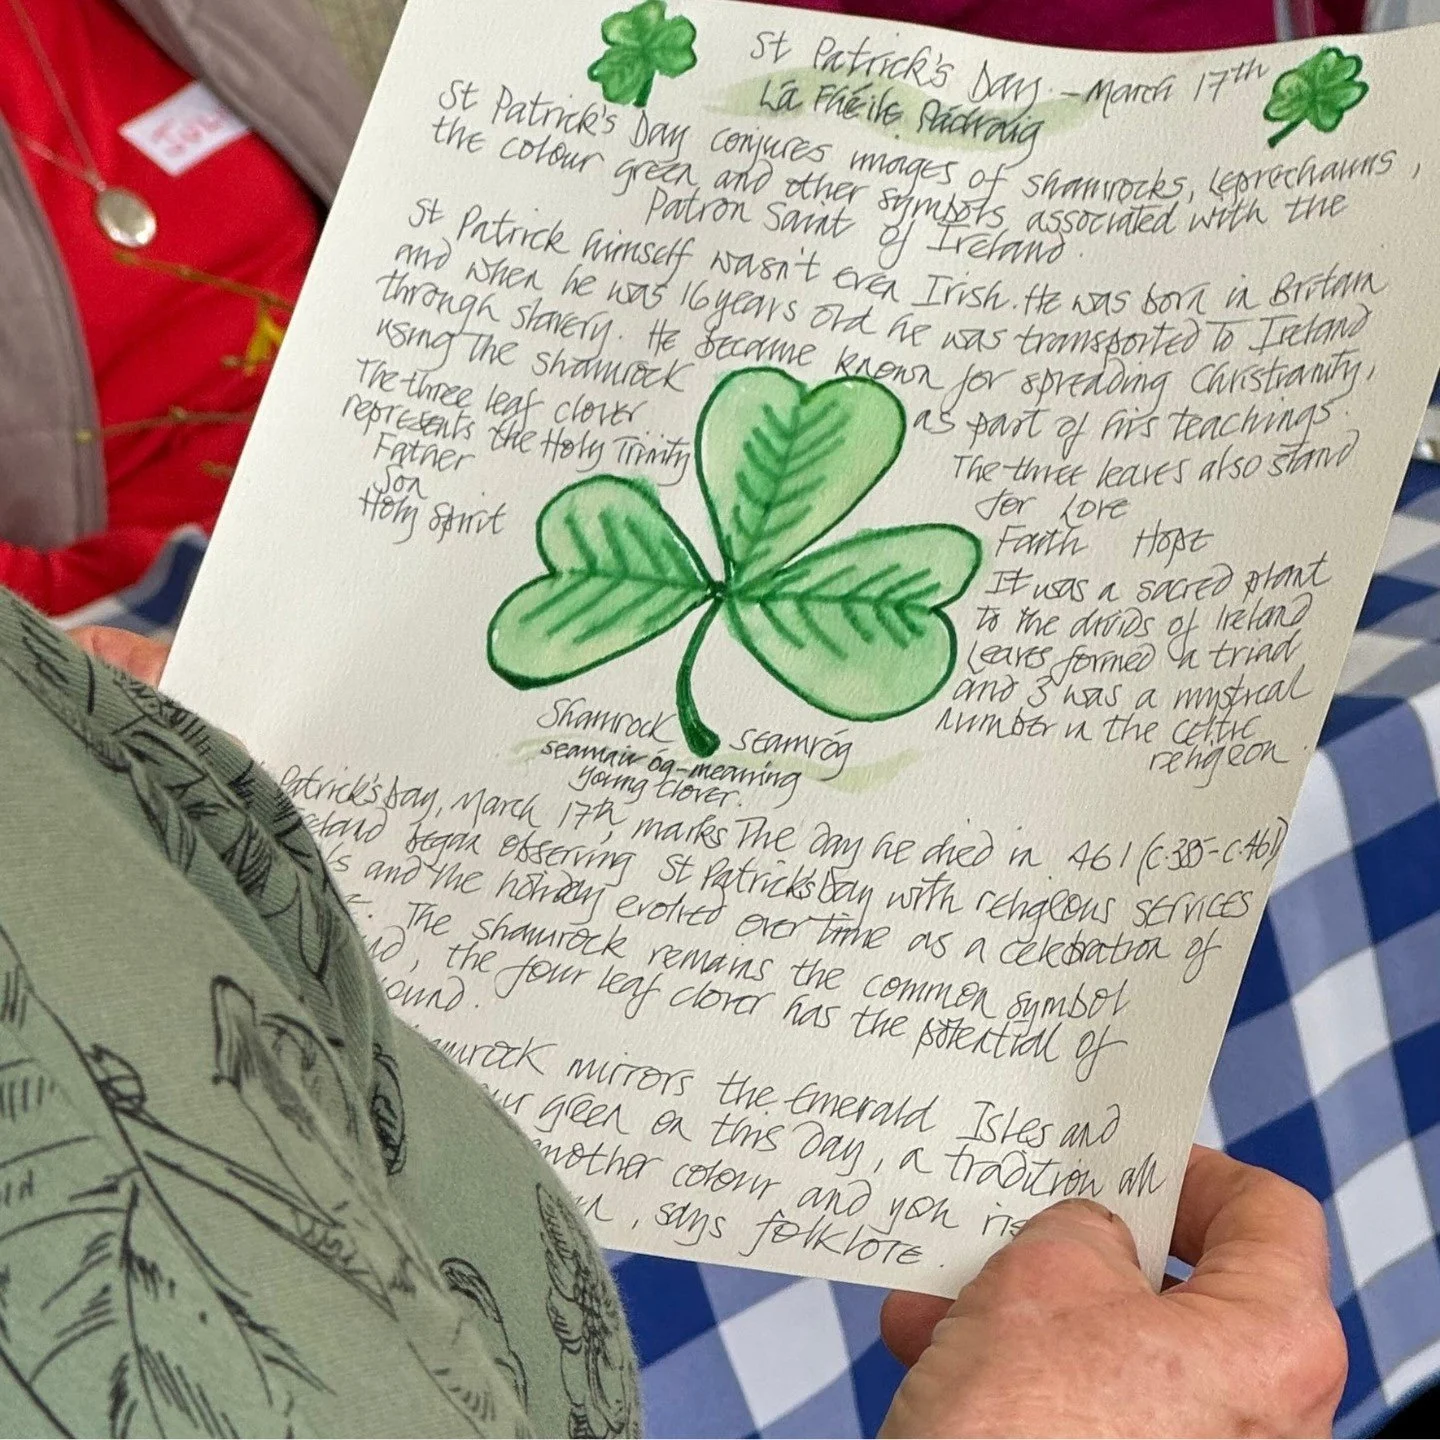 St Patrick's Day - March 17th
Lá Fhéile Pádraig
St Patrick's Day conjures images of shamrocks, leprechauns,
the colour green and other symbols associated with the
Patron Saint of Ireland.
St Patrick himself wasn't even Irish. He was born in Britain
and when he was 16 years old he was transported to Ireland
through slavery. He became known for spreading Christianity,
using the shamrock as part of his teachings.
The three leaf clover
represents the Holy Trinity
Father
Son
Holy Spirit
The three leaves also stand
for Love
Faith Hope
It was a sacred plant
to the druids of Ireland
Leaves formed a triad
and 3 was a mystical
number in the celtic
religeon
Shamrock seamróg
seamair óg - meaning
young clover.
Patrick's Day, March 17th, marks the day he died in 461 (c.385-c.461)
began observing St Patrick's Day with religeous services
and the holiday evolved over time as a celebration of
The shamrock remains the common symbol
, the four leaf clover has the potential of
mirrors the Emerald Isles and
green on this day, a tradition all
another colour and you
, says folklore.